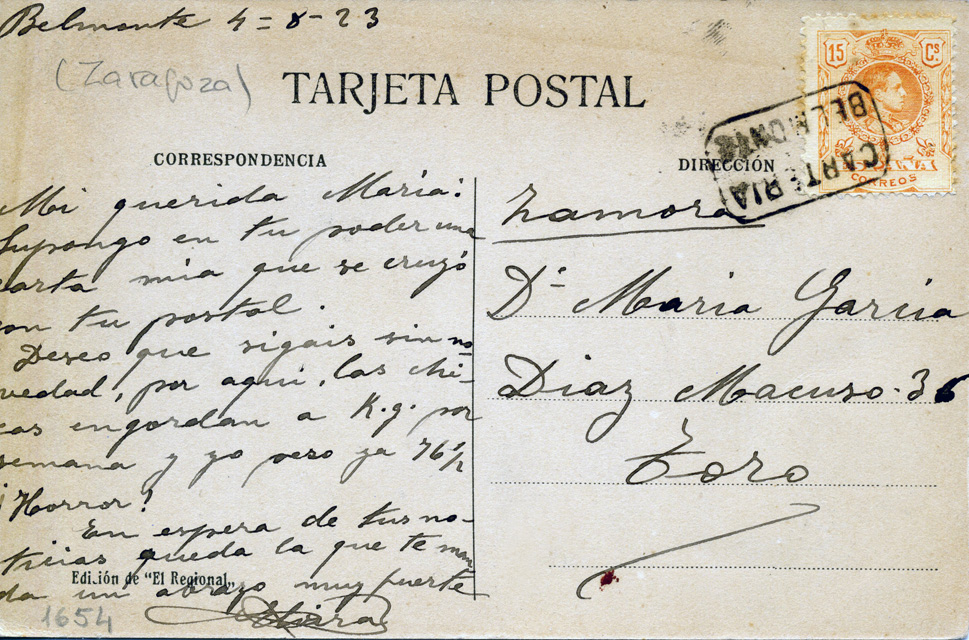 Belmonte 4=8-23
(Zaragoza)
TARJETA POSTAL
15 Cs
CORREOS
BELMONTE
CARTERIA
CORRESPONDENCIA
Mi querida María:
Supongo en tu poder una
carta mia que se cruzó
con tu postal.
Deseo que sigais sin no-
vedad, por aqui, las chi-
cas engordan a K.g. por
semana y yo peso ya 76 1/2
¡Horror!
En espera de tus no-
ticias queda la que te man
da un abrazo muy fuerte
Edición de "El Regional"
1654
DIRECCIÓN
Zamora
Dª Maria Garcia
Diaz Macuso. 36
Toro